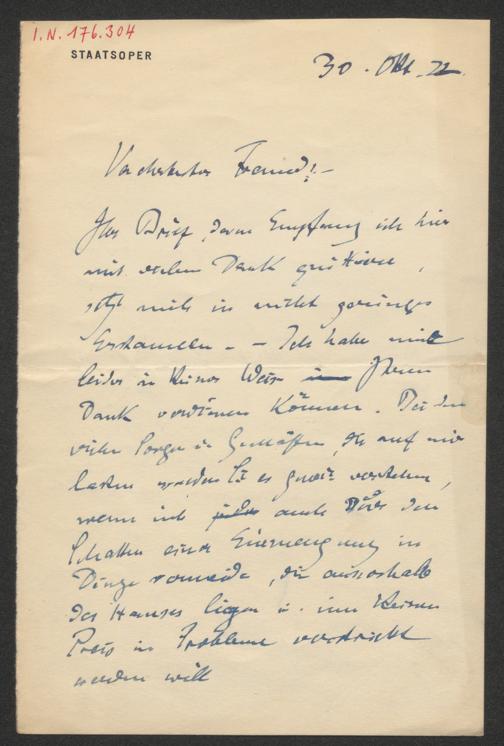 I.N. 176.304
STAATSOPER
30. Okt. 22
Verehrtester Freund! –
Ihr Brief, deren Empfang ich hier
mit vielem Dank quittiere,
setzt mich in nicht geringes
Erstaunen. – Ich habe mir
leider in keiner Weise Ihren
Dank verdienen können. Bei den
vielen Sorgen u Geschäften, die auf mir
lasten werden Sie es gewiß verstehen,
wenn ich auch nur den
Schatten einer Einmengung in
Dinge vermeide, die ausserhalb
des Hauses liegen u. um keinen
Preis in Probleme verstrickt
werden will